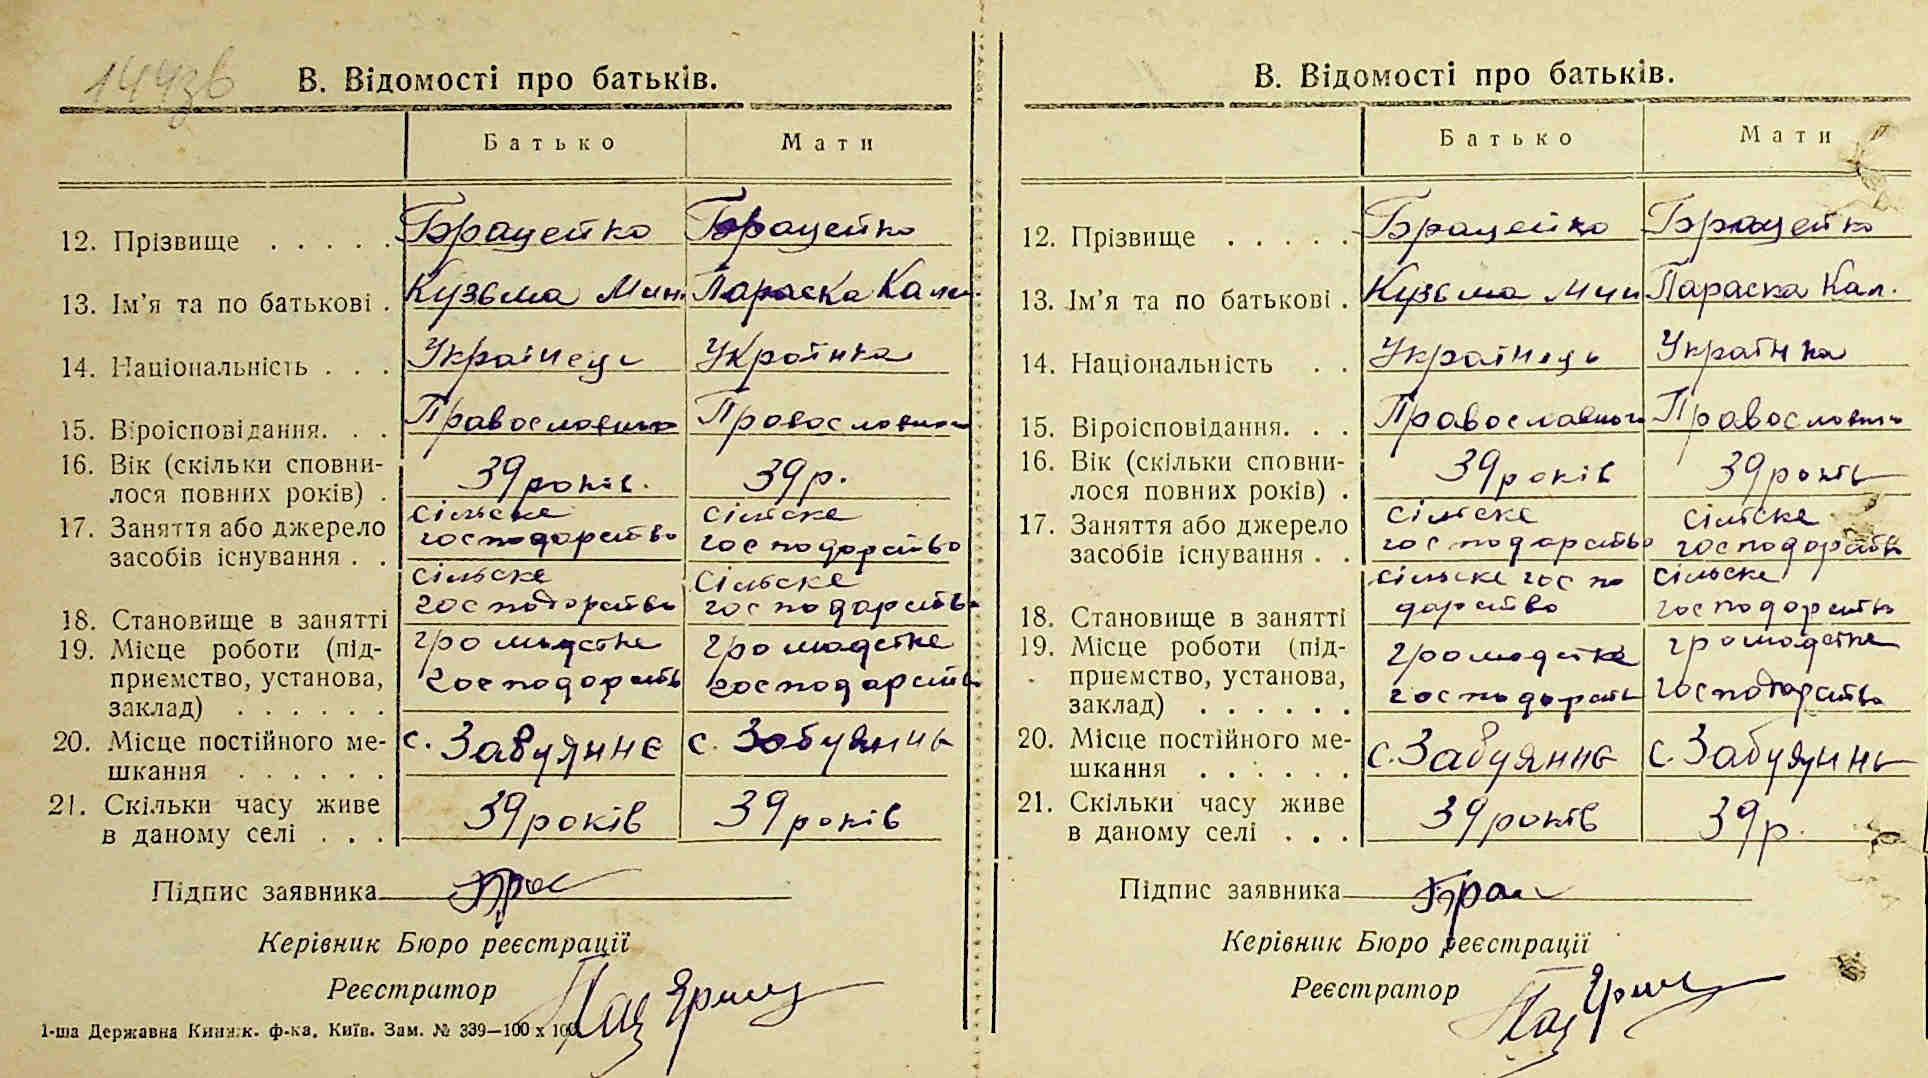 144зв
В. Відомості про батьків.
Батько Мати
12. Прізвище . . . . . Брацейко Брацейко
13. Ім'я та по батькові . Кузьма Мин. Параска Кали.
14. Національність . . . Українець Українка
15. Віроісповідання. . . Православного Православного
16. Вік (скільки сповни-
лося повних років) . 39 років. 39 р.
17. Заняття або джерело сільске сільске
засобів існування . . господарство господарство
сільске сільске
18. Становище в занятті господарство господарство
19. Місце роботи (під- громадське громадське
приємство, установа, господарств господарство
заклад) . . . . . .
20. Місце постійного ме- с. Забуяннє с. Забуяннь
шкання . . . . . .
21. Скільки часу живе 39 років 39 років
в даному селі . . .
Підпис заявника Брас
Керівник Бюро реєстрації
Реєстратор
1-ша Державна Книжк. ф-ка, Київ. Зам. № 339—100 х 100.
В. Відомості про батьків.
Батько Мати
12. Прізвище . . . . . Брацейко Брацейко
13. Ім'я та по батькові . Кузьма Мин Параска Кал.
14. Національність . . Українець Українка
15. Віроісповідання. . . Православного Православного
16. Вік (скільки сповни-
лося повних років) . 39 років 39 років
17. Заняття або джерело сільске сільске
засобів існування . . господарство господарств
сільске госпо сільске
18. Становище в занятті дарство господарство
19. Місце роботи (під- громадске громадске
приємство, установа, господарств господарство
заклад) . . . . . .
20. Місце постійного ме- с. Забуяннь с. Забуяннь
шкання . . . . . .
21. Скільки часу живе 39 років 39 р.
в даному селі . . .
Підпис заявника Брац
Керівник Бюро реєстрації
Реєстратор